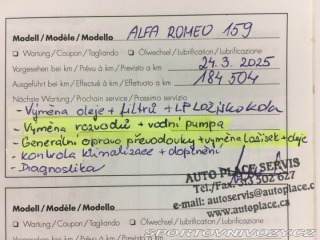 Modell/Modèle/Modello ALFA ROMEO 159
Wartung/Coupon/Tagliando Ölwechsel/Lubrification/Lubrificazione
Vorgesehen bei km/Prévu à km/Previsto a km 24.3.2025
Ausgeführt bei km/Effectué à km/Effettuato a km 184 504
Nächste Wartung/Prochain service/Prossimo servizio
- Výměna oleje + filtrů + LP Ložisko kola
- Výměna rozvodů + vodní pumpa
- Generální oprava převodovky + výměna ložisek + oleje
- kontrola klimatizace + doplnění
- Diagnostika
AUTO PLACE SERVIS
Tel./Fax: 627
e-mail: autoservis@autoplace.cz
www.autoplace.cz
Modell/Modèle/Modello
Wartung/Coupon/Tagliando Ölwechsel/Lubrification/Lubrificazione
SPORTOVNIVOZY.CZ